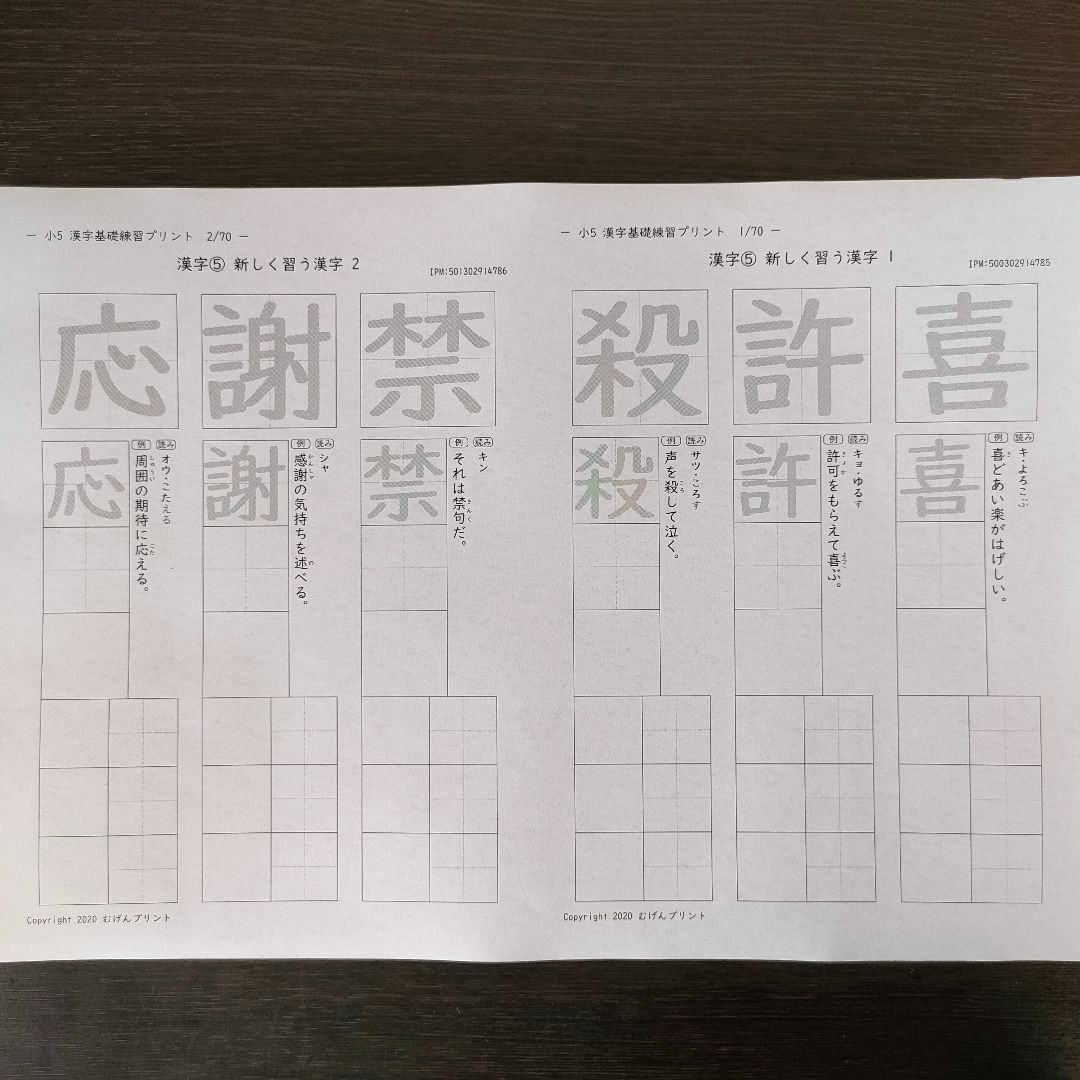 ― 小5 漢字基礎練習プリント 1/70 ―
漢字⑤ 新しく習う漢字 1
IPM:500302914785
喜
読み
キ・よろこぶ
例
喜どあい楽がはげしい。
き
喜
許
読み
キョ・ゆるす
例
許可をもらえて喜ぶ。
きょか
よろこ
許
殺
読み
サツ・ころす
例
声を殺して泣く。
ころ
殺
Copyright 2020 むげんプリント
― 小5 漢字基礎練習プリント 2/70 ―
漢字⑤ 新しく習う漢字 2
IPM:501302914786
禁
読み
キン
例
それは禁句だ。
きんく
禁
謝
読み
シャ
例
感謝の気持ちを述べる。
かんしゃ
の
謝
応
読み
オウ・こたえる
例
周囲の期待に応える。
しゅうい
こた
応
Copyright 2020 むげんプリント